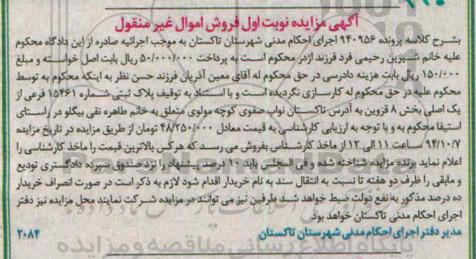 آگهی مزایده نوبت اول فروش اموال غیر منقول
بشرح کلاسه پرونده ۹۴۰۹۵۶ اجرای احکام مدنی شهرستان تاکستان به موجب اجرائیه صادره از این دادگاه محکوم
علیه خانم شیرین رحیمی فرد فرزند اژدر محکوم است به پرداخت ۵۰/۰۰۰/۰۰۰ ریال بابت اصل خواسته و مبلغ
۱۵۰/۰۰۰ ریال بابت هزینه دادرسی در حق محکوم له آقای معین آذریان فرزند حسن نظر به اینکه محکوم به توسط
محکوم علیه در حق محکوم له کارسازی نگردیده است و با استناد به توقیف پلاک ثبتی شماره ۱۵۴۶۱ فرعی از
یک اصلی بخش ۸ قزوین به آدرس تاکستان نواب صفوی کوچه مولوی متعلق به خانم طاهره نقی بیگلو در راستای
استیفا محکوم به و با توجه به ارزیابی کارشناسی به قیمت معادل ۴۸/۷۵۰/۰۰۰ تومان از طریق مزایده در تاریخ مزایده
۹۴/۱۰/۷ ساعت ۱۱ الی ۱۲ از ماخذ کارشناس بفروش می رسد که هر کس بالاترین قیمت را ماخذ کارشناسی را
اعلام نماید برنده مزایده شناخته شده و فی المجلس باید ۱۰ درصد پیشنهاد را نزد صندوق سپرده دادگستری تودیع
و مابقی را ظرف دو هفته تا نسبت به انتقال سند به نام خریدار اقدام شود لازم به ذکر است در صورت انصراف خریدار
ده درصد مذکور به نفع دولت ضبط خواهد شد طرفین نیز می توانند در مزایده شرکت نمایند محل مزایده نیز دفتر
اجرای احکام مدنی تاکستان خواهد بود.
مدیر دفتر اجرای احکام مدنی شهرستان تاکستان ۲۰۸۴
پایگاه اطلاع رسانی مناقصه و مزایده